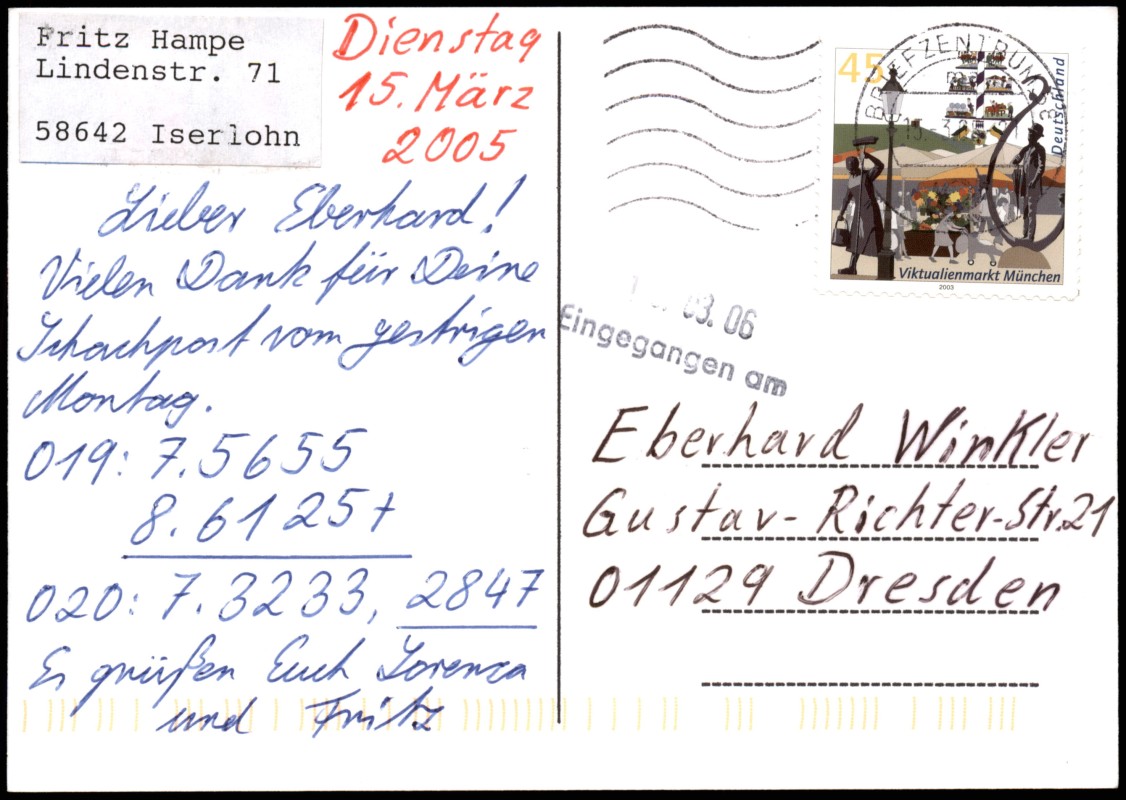 Fritz Hampe
Lindenstr. 71
58642 Iserlohn
Dienstag
15. März
2005
Lieber Eberhard!
Vielen Dank für Deine
Schachpost vom gestrigen
Montag.
019: 7. 5655
8. 6125+
020: 7. 3233, 2847
Es grüßen Euch Lorenza
und Fritz
BRIEFZENTRUM 58
45
Deutschland
Viktualienmarkt München
2003
03.06
Eingegangen am
Eberhard Winkler
Gustav-Richter-Str. 21
01129 Dresden